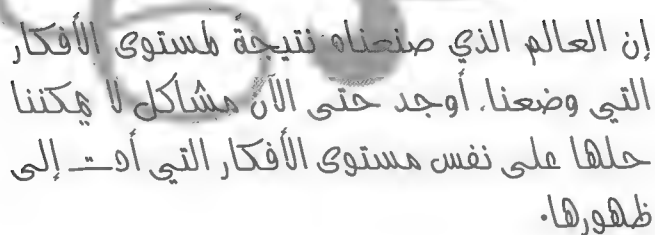 إن العالم الذي صنعناه نتيجة لمستوى الأفكار
التي وضعنا. أوجد حتى الآن مشاكل لا يمكننا
حلها على نفس مستوى الأفكار التي أدت إلى
ظهورها.